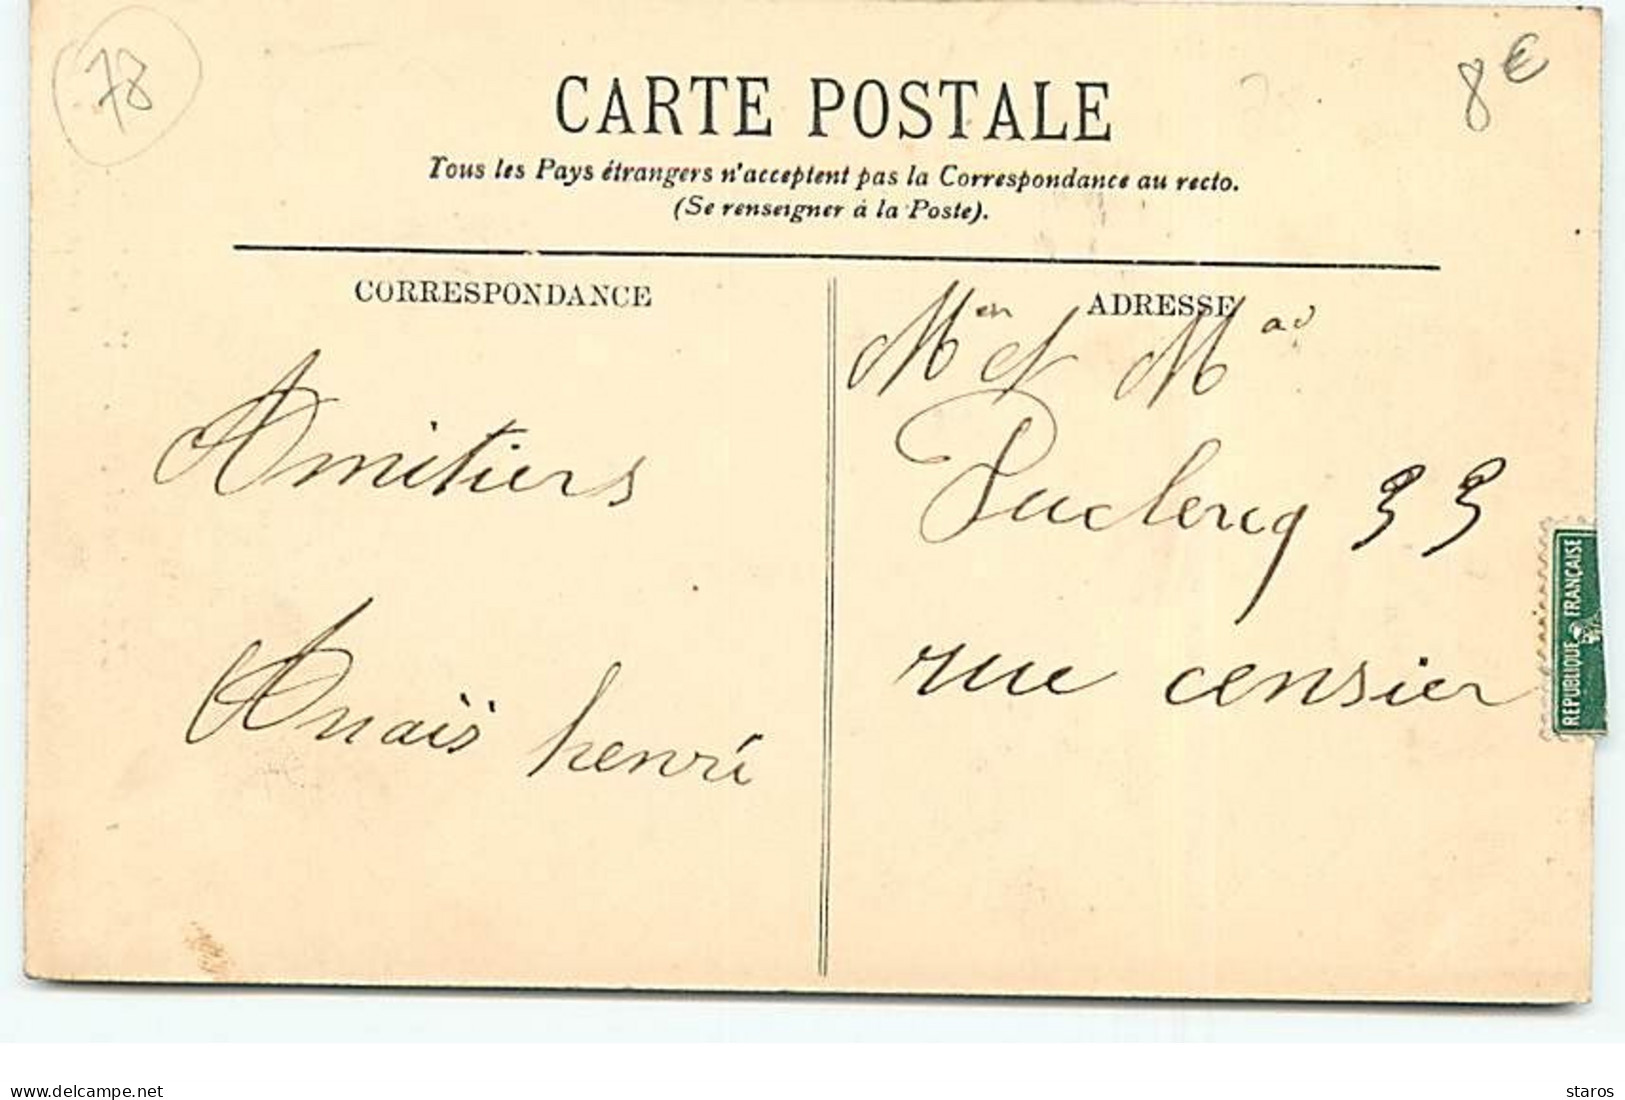 78
8€
CARTE POSTALE
Tous les Pays étrangers n'acceptent pas la Correspondance au recto.
(Se renseigner à la Poste).
CORRESPONDANCE
Amitiers
Anaïs henri
ADRESSE
et
33
rue censier
REPUBLIQUE FRANÇAISE
www.delcampe.net
staros